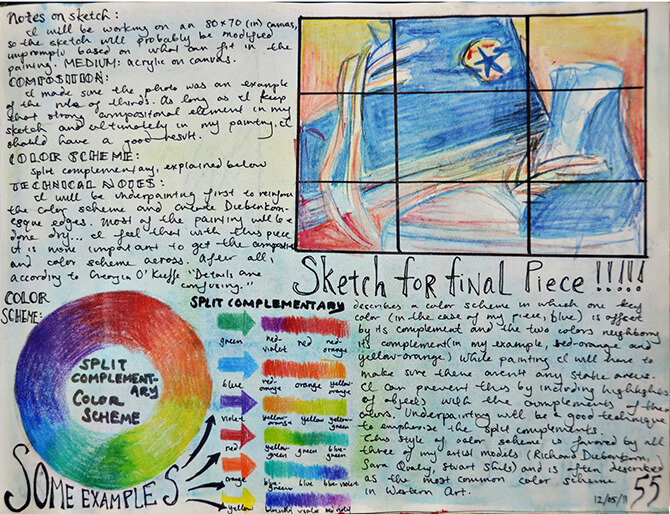 Notes on sketch:
I will be working on an 80x70 (in) canvas,
so the sketch will probably be modified
impromptu based on what can fit in the
painting. MEDIUM: acrylic on canvas.
COMPOSITION:
I made sure the photo was an example
of the rule of thirds. As long as I keep
that strong compositional element in my
sketch and ultimately in my painting, it
should have a good result.
COLOR SCHEME:
split complementary, explained below
TECHNICAL NOTES:
I will be underpainting first to reinforce
the color scheme and create Diebenkorn-
esque edges. Most of the painting will be
done dry. I feel that with this piece
it is more important to get the composition
and color scheme across. After all,
according to Georgia O'Keeffe "Details are
confusing."
Sketch for final Piece !!!!!
COLOR
SCHEME:
SPLIT
COMPLEMENT-
ARY
COLOR
SCHEME
SOME EXAMPLES
SPLIT COMPLEMENTARY
green red-violet red red-orange
blue red-orange orange yellow-orange
violet yellow-orange yellow yellow-green
red yellow-green green blue-green
orange blue-green blue blue-violet
yellow violet
describes a color scheme in which one key
color (in the case of my piece, blue) is offset
by its complement and the two colors neighboring
its complement (in my example, red-orange and
yellow-orange) While painting I will have to
make sure there aren't any stale areas.
I can prevent this by including highlights
of objects with the complements of the
colors. Underpainting will be a good technique
to emphasize the split complements.
This style of color scheme is favored by all
three of my artist models (Richard Diebenkorn,
Sara Qualey, Stuart Shils) and is often described
as the most common color scheme
in Western Art.
12/05/11
55